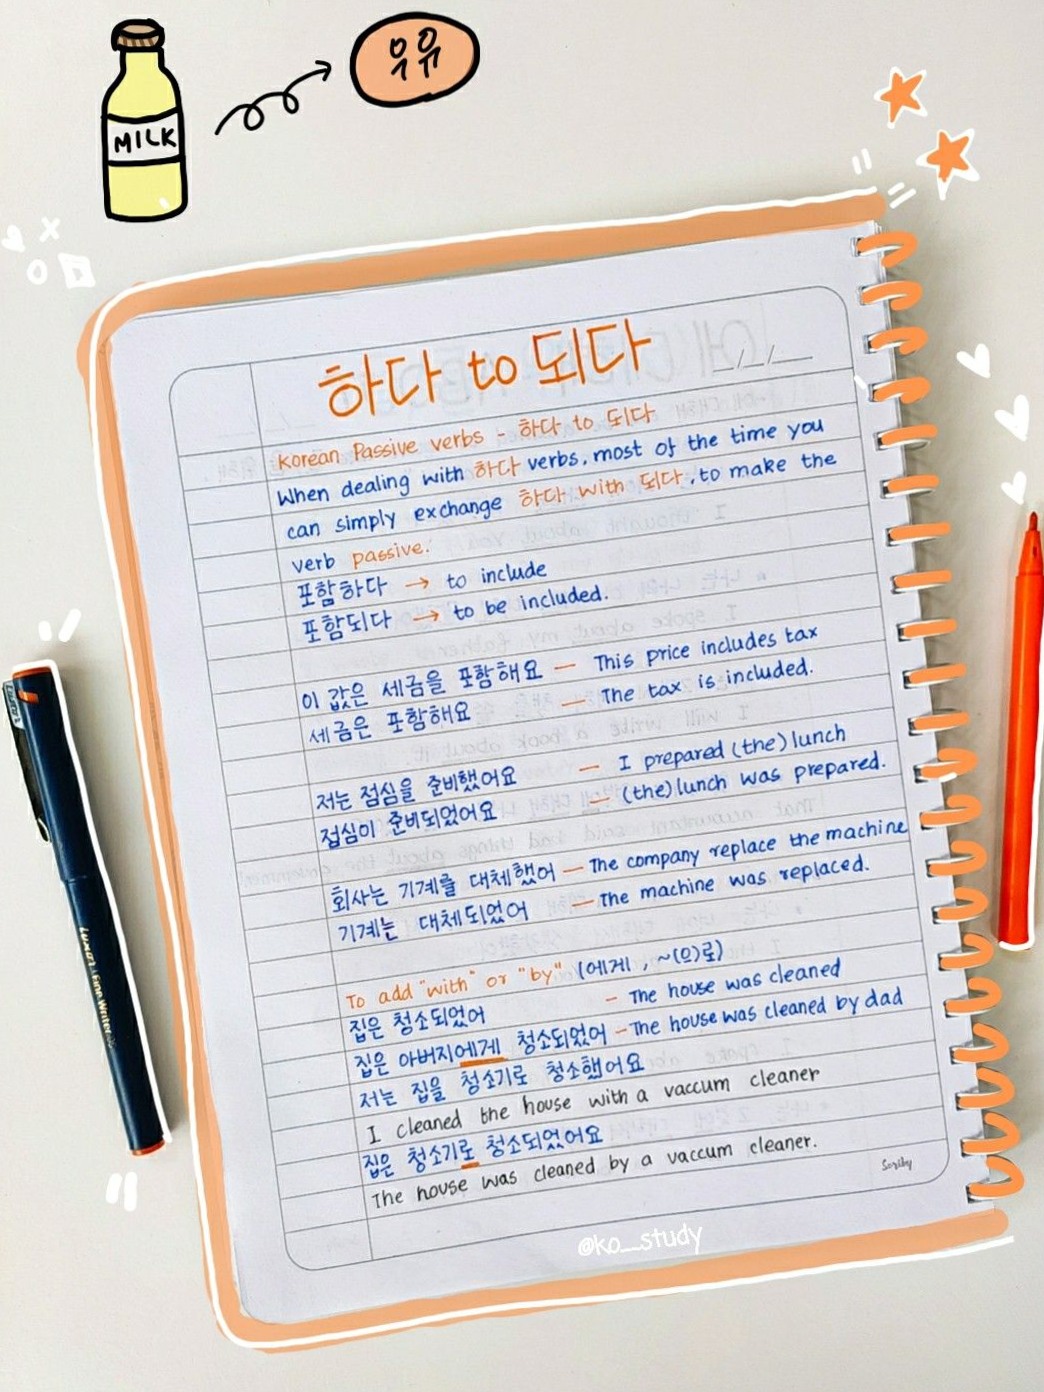 MILK
우유
하다 to 되다
Korean Passive verbs - 하다 to 되다
When dealing with 하다 verbs, most of the time you
can simply exchange 하다 with 되다, to make the
verb passive.
포함하다 → to include
포함되다 → to be included.
이 값은 세금을 포함해요 — This price includes tax
세금은 포함해요 — The tax is included.
저는 점심을 준비했어요 — I prepared (the) lunch
점심이 준비되었어요 — (the) lunch was prepared.
회사는 기계를 대체했어 — The company replace the machine
기계는 대체되었어 — The machine was replaced.
To add "with" or "by" (에게, ~(으)로)
집은 청소되었어 — The house was cleaned
집은 아버지에게 청소되었어 — The house was cleaned by dad
저는 집을 청소기로 청소했어요
I cleaned the house with a vaccum cleaner
집은 청소기로 청소되었어요
The house was cleaned by a vaccum cleaner.
@ko__study